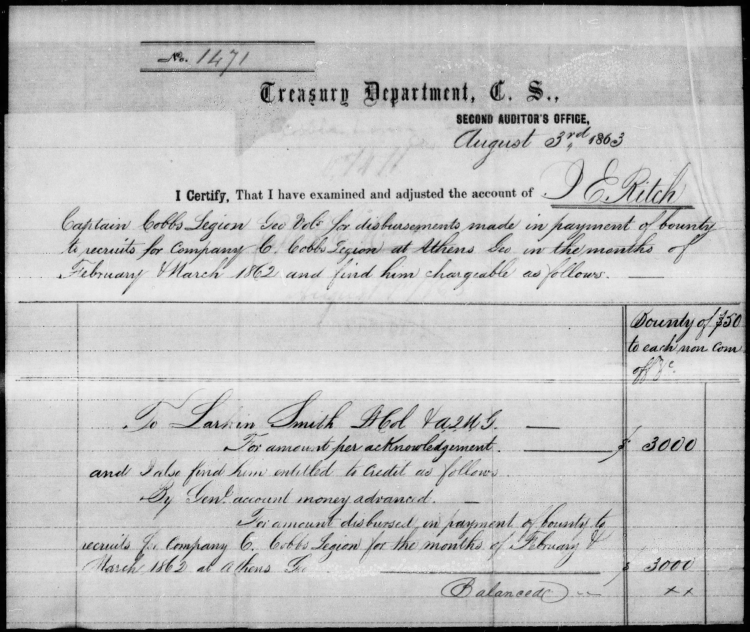 No. 1471
Treasury Department, C. S.,
SECOND AUDITOR'S OFFICE,
August 3rd 1863
I Certify, That I have examined and adjusted the account of J E Ritch
Captain Cobbs Legion Geo Vols for disbursements made in payment of bounty
to recruits for Company C. Cobbs Legion at Athens Geo in the months of
February & March 1862 and find him chargeable as follows. —
Bounty of $50
to each non com
off &c.
To Larkin Smith Lt Col & A.Q.M.G. —
For amount per acknowledgement. — $ 3000
and I also find him entitled to credit as follows
By Genl account money advanced. —
For amount disbursed in payment of bounty to
recruits for Company C. Cobbs Legion for the months of February &
March 1862 at Athens Geo — $ 3000
Balanced — xx